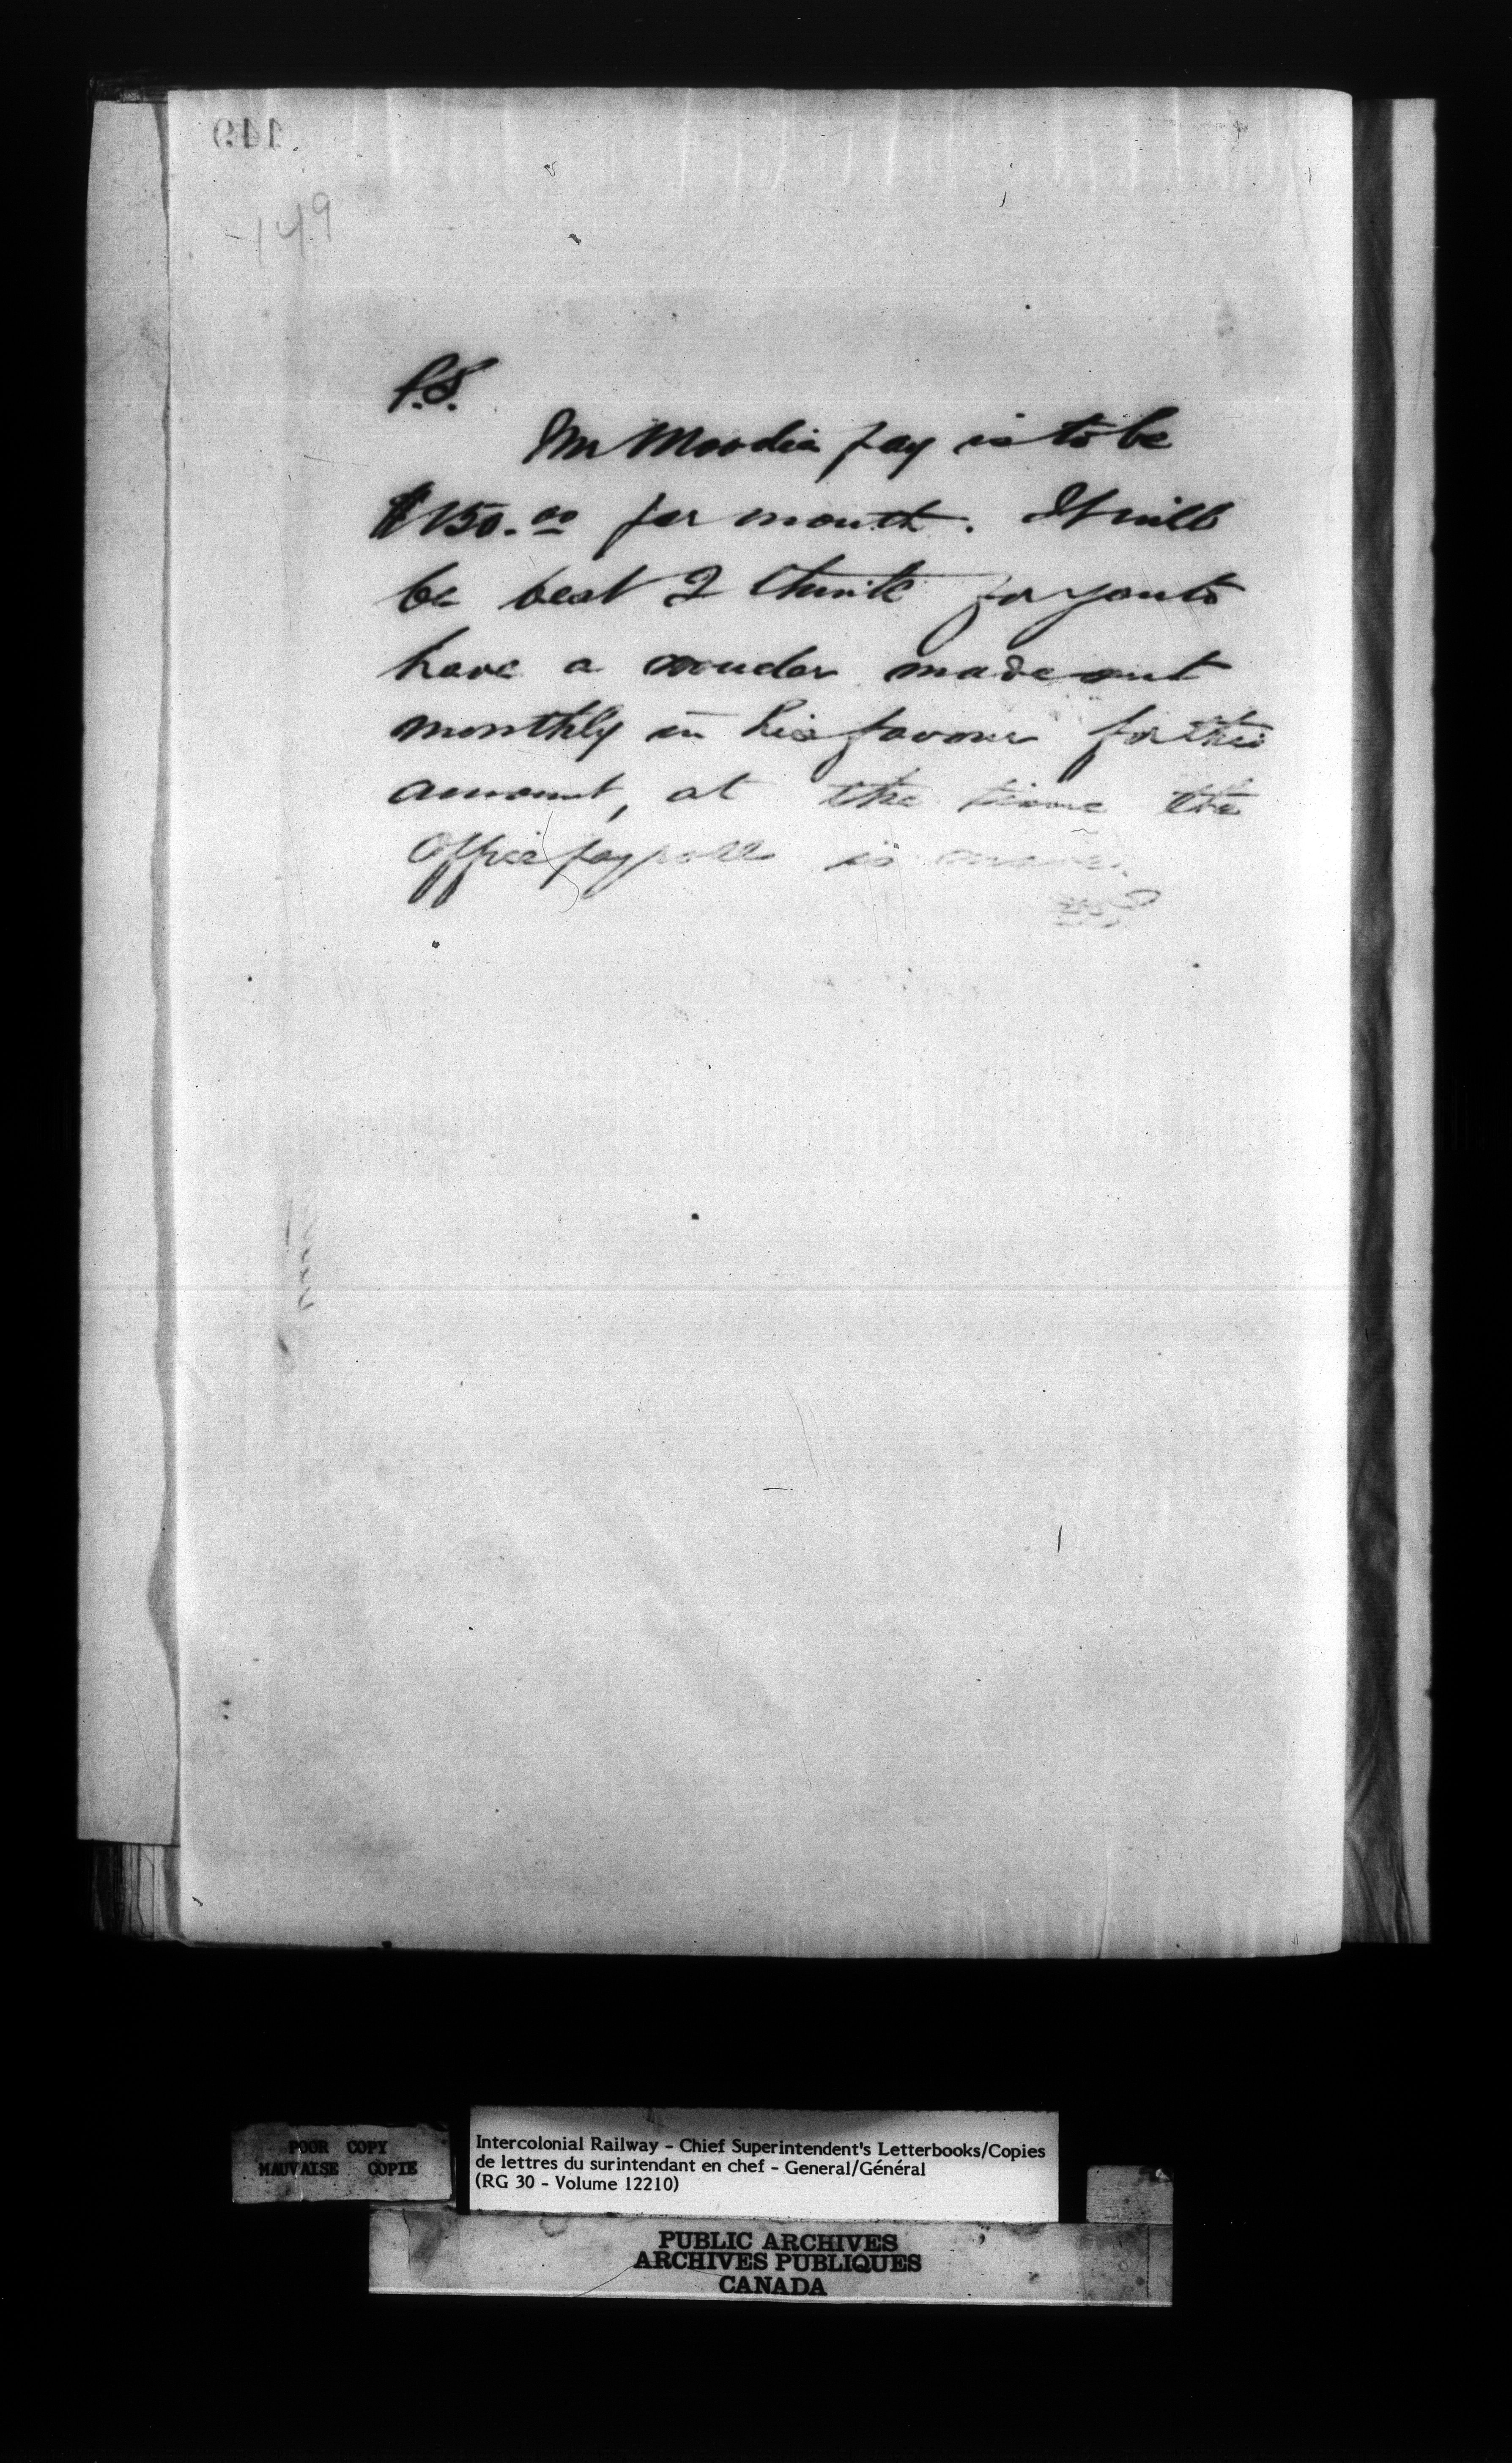 149
149
P.S.
Mr Moodie pay is to be
$150.00 per month. It will
be best I think for you to
have a voucher made out
monthly in his favour for this
amount, at the time the
Office pay rolls is made.
POOR COPY
MAUVAISE COPIE
Intercolonial Railway - Chief Superintendent's Letterbooks/Copies
de lettres du surintendant en chef - General/Général
(RG 30 - Volume 12210)
PUBLIC ARCHIVES
ARCHIVES PUBLIQUES
CANADA